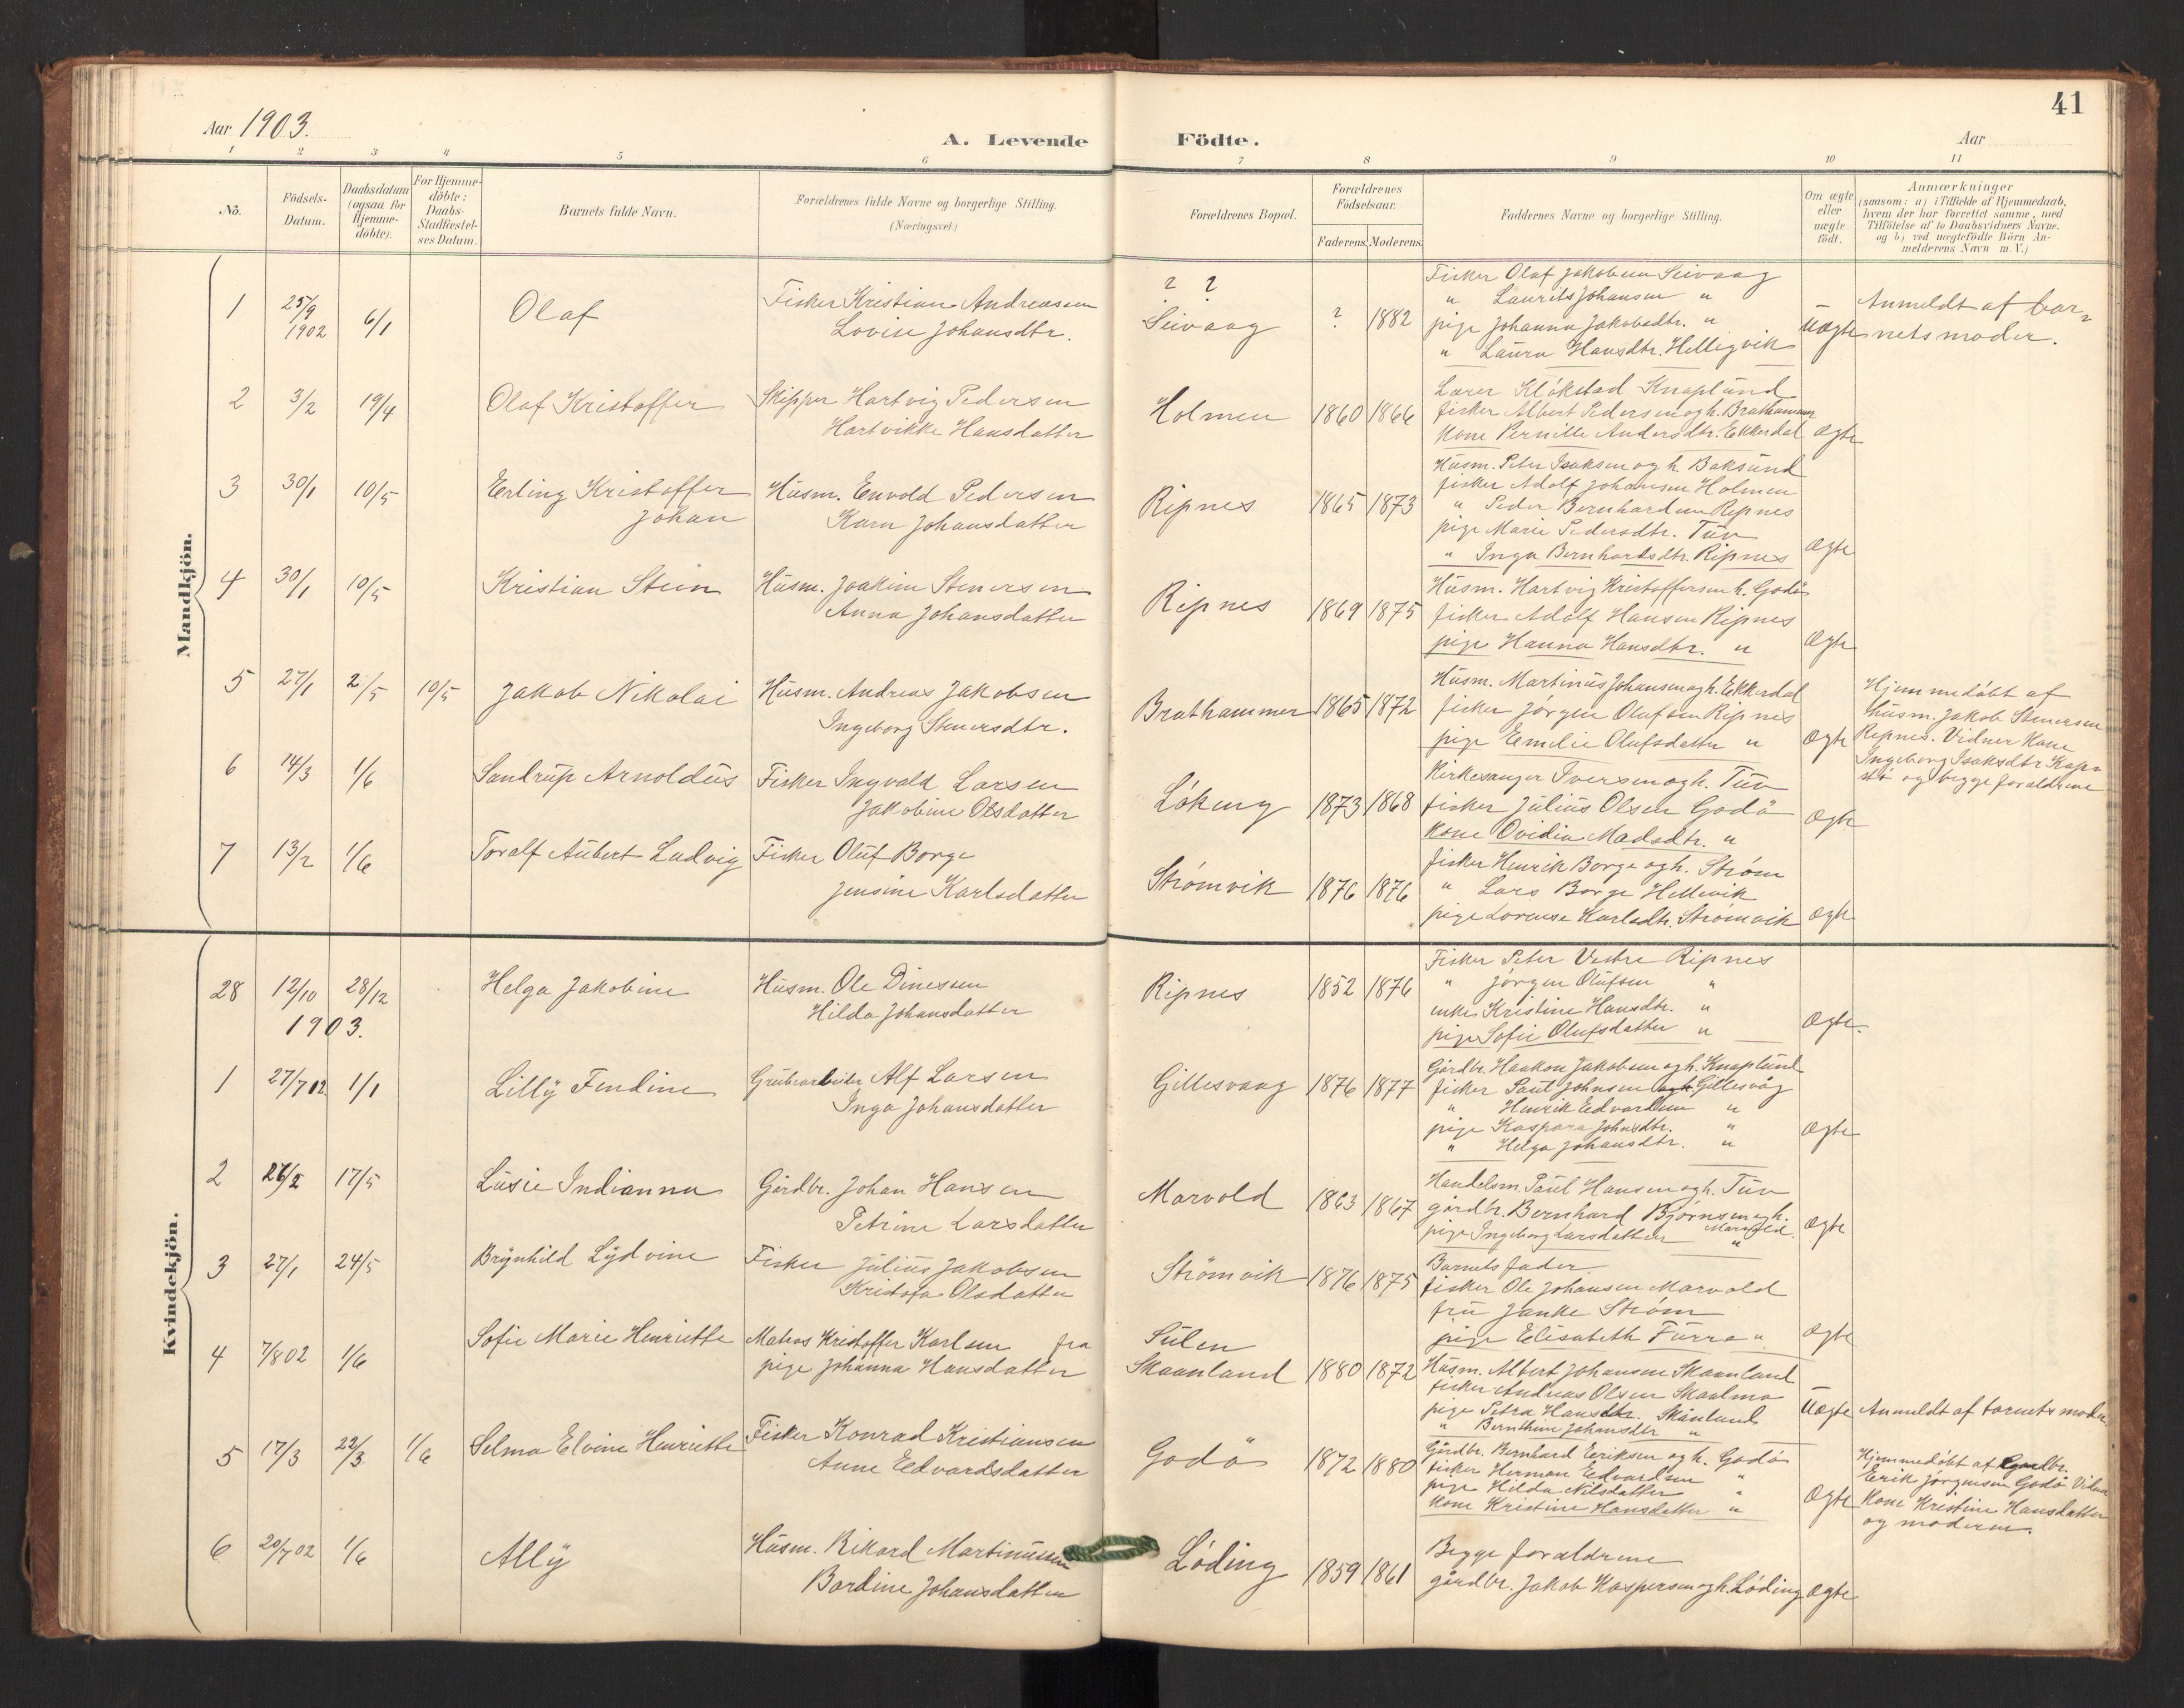 41
Aar 1903.
A. Levende Födte.
Aar
1 2 3 4 5 6 7 8 9 10 11
No.
Födsels-Datum.
Daabsdatum (ogsaa for Hjemme-döbte).
For Hjemme-döbte: Daabs-Stadfæstel-ses Datum.
Barnets fulde Navn.
Forældrenes fulde Navne og borgerlige Stilling.
(Næringsvei.)
Forældrenes Bopæl.
Forældrenes Födselsaar.
Faderens. Moderens.
Faddernes Navne og borgerlige Stilling.
Om ægte eller uægte födt.
Anmærkninger
(saasom: a) i Tilfælde af Hjemmedaab,
hvem der har forrettet samme, med
Tilföielse af to Daabsvidners Navne.
og b) ved uægtefödte Börn An-
melderens Navn m. V.)
Mandkjön.
1 25/9 1902 6/1 Olaf
Fisker Kristian Andreasen
Lovise Johansdtr.
? ?
Seivaag ? 1882
Fisker Olaf Jakobsen Seivaag
" Laurits Johansen "
pige Johanna Jakobsdtr. "
" Laura Hansdtr. Hellegvik
Uægte
Anmeldt af bar-
nets moder.
2 3/2 19/4 Olaf Kristoffer
Skipper Hartvig Pedersen
Hartvikke Hansdatter
Holmen 1860 1866
Lærer Klökstad Knaplund
fisker Albert Pedersen og h. Brathammer
kone Pernille Andersdtr. Ekkerdal
Ægte
3 30/1 10/5 Erling Kristoffer
Johan
Husm. Envold Pedersen
Karn Johansdatter
Ripnes 1865 1873
Husm. Peter Isaksen og h. Baksund
fisker Adolf Johansen Holmen
" Peder Bernhardsen Ripnes
pige Marie Pedersdtr. Tuv
" Inga Bernhartsdtr. Ripnes
Ægte
4 30/1 10/5 Kristian Stein
Husm. Joakim Stenersen
Anna Johansdatter
Ripnes 1869 1875
Husm. Hartvig Kristoffersen h. Godö
fisker Adolf Hansen Ripnes
pige Hanna Hansdtr. "
Ægte
5 27/1 2/5 10/5 Jakob Nikolai
Husm. Andreas Jakobsen
Ingeborg Stenersdtr.
Brathammer 1865 1872
Husm. Martinus Johansen og h. Ekkerdal
fisker Jörgen Olufsen Ripnes
pige Emelie Olufsdatter "
Ægte
Hjemmedöbt af
husm. Jakob Stenersen
Ripnes. Vidner Kone
Ingeborg Isaksdtr
og begge forældrene
6 14/3 1/6 Santrup Arnoldus
Fisker Ingvald Larsen
Jakobine Olsdatter
Lökeng 1873 1868
Kirkesanger Iversen og h. Tuv
fisker Julius Olsen Godö
kone Ovidia Madsdtr. "
Ægte
7 13/2 1/6 Toralf Aubert Ludvig
Fisker Oluf Borge
Jensine Karlsdatter
Strömvik 1876 1876
fisker Henrik Borge og h. Ström
" Lars Borge Hellevik
pige Lorense Karlsdtr. Strömvik
Ægte
Kvindekjön.
28 12/10 28/12 Helga Jakobine
Husm. Ole Dinesen
Hilda Johansdatter
Ripnes 1852 1876
Fisker Peter Vestre Ripnes
" Jörgen Olufsen "
enke Kristine Hansdtr. "
pige Sofie Olufsdatter "
Ægte.
1903.
1 27/7 02. 1/1 Lilly Fendine
Grubearbeider Alf Larsen
Inga Johansdatter
Gillesvaag 1876 1877
Gårdbr. Haakon Jakobsen og h. Knaplund
fisker Paul Johnsen og h. Gillesvåg
" Henrik Edvardsen "
pige Kaspara Johnsdtr. "
" Helga Johansdtr. "
Ægte
2 26/2 17/5 Lusie Indianna
Gårdbr. Johan Hansen
Petrine Larsdatter
Marvold 1863 1867
Handelsm. Paul Hansen og h. Tuv
gårdbr. Bernhard Björnsen og h. Marvold.
pige Ingeborg Larsdatter "
Ægte
3 27/1 24/5 Brynhild Lydvine
Fisker Julius Jakobsen
Kristofa Olsdatter
Strömvik 1876 1875
Barnets fader.
fisker Ole Johansen Marvold
fru Janke Ström
pige Elisabeth Furre "
Ægte
4 7/8 02 1/6 Sofie Marie Henriette
Matros Kristoffer Karlsen fra
pige Johanna Hansdatter
Sulen
Skaanland 1880 1872
Husm. Albert Johansen Skaanland
fisker Andreas Olsen Skaalmo
pige Petra Hansdtr. Skånland
" Bernthine Johansdtr "
Uægte
Anmeldt af barnets moder.
5 17/3 22/3 1/6 Selma Elvine Henriette
Fisker Konrad Kristiansen
Anne Edvardsdatter
Godö 1872 1880
Gårdbr. Bernhard Eriksen og h. Godö
fisker Herman Edvardsen "
pige Hilda Nilsdatter "
kone Kristine Hansdatter "
Ægte
Hjemmedöbt af Gårdbr.
Erik Jörgensen Godö. Vidner
Kone Kristine Hansdatter
og moderen.
6 20/7 02 1/6 Ally
Husm. Rikard Martinussen
Bardine Johansdatter
Löding 1859 1861
Begge forældrene
gårdbr. Jakob Kaspersen og h. Löding
Ægte